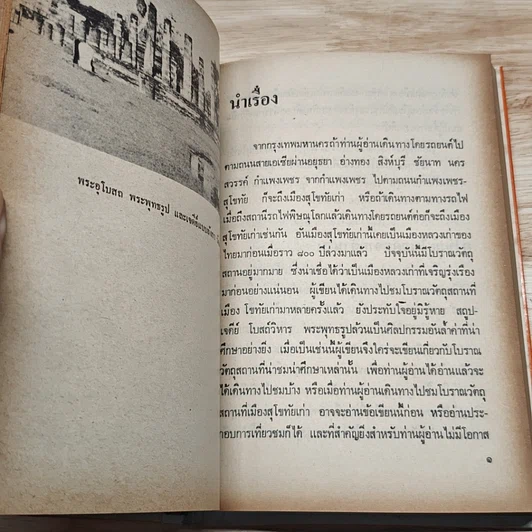 พระอุโบสถ พระพุทธรูป และเจดีย์
นำเรื่อง
จากกรุงเทพมหานครถ้าท่านผู้อ่านเดินทางโดยรถยนต์ไป
ตามถนนสายเอเซียผ่านอยุธยา อ่างทอง สิงห์บุรี ชัยนาท นคร
สวรรค์ กำแพงเพชร จากกำแพงเพชร ไปตามถนนกำแพงเพชร-
สุโขทัย ก็จะถึงเมืองสุโขทัยเก่า หรือถ้าเดินทางตามทางรถไฟ
เมื่อถึงสถานีรถไฟพิษณุโลกแล้วเดินทางโดยรถยนต์ต่อก็จะถึงเมือง
สุโขทัยเก่าเช่นกัน อันเมืองสุโขทัยเก่านี้เคยเป็นเมืองหลวงเก่าของ
ไทยมาก่อนเมื่อราว ๘๐๐ ปีล่วงมาแล้ว ปัจจุบันนี้มีโบราณวัตถุ
สถานอยู่มากมาย ซึ่งน่าเชื่อได้ว่าเป็นเมืองหลวงเก่าที่เจริญรุ่งเรือง
มาก่อนอย่างแน่นอน ผู้เขียนได้เดินทางไปชมโบราณวัตถุสถานที่
เมือง โขทัยเก่ามาหลายครั้งแล้ว ยังประทับใจอยู่มิรู้หาย สถูป-
เจดีย์ โบสถ์วิหาร พระพุทธรูปล้วนเป็นศิลปกรรมอันล้ำค่าที่น่า
ศึกษาอย่างยิ่ง เมื่อเป็นเช่นนี้ผู้เขียนจึงใคร่จะเขียนเกี่ยวกับโบราณ
วัตถุสถานที่น่าชมน่าศึกษาเหล่านั้น เพื่อท่านผู้อ่านได้อ่านแล้วจะ
ได้เดินทางไปชมบ้าง หรือเมื่อท่านผู้อ่านเดินทางไปชมโบราณวัตถุ
สถานที่เมืองสุโขทัยเก่า อาจจะอ่านข้อเขียนนี้ก่อน หรืออ่านประ-
กอบการเที่ยวชมก็ได้ และที่สำคัญยิ่งสำหรับท่านผู้อ่านไม่มีโอกาส
๑